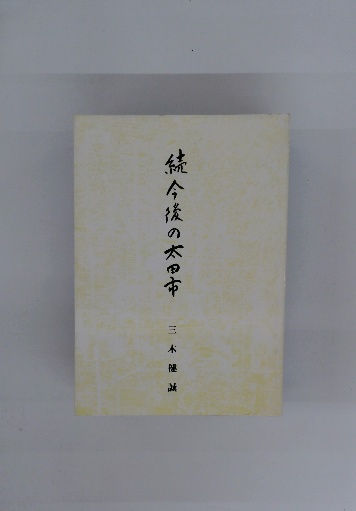 続今後の太田市
三木健誠